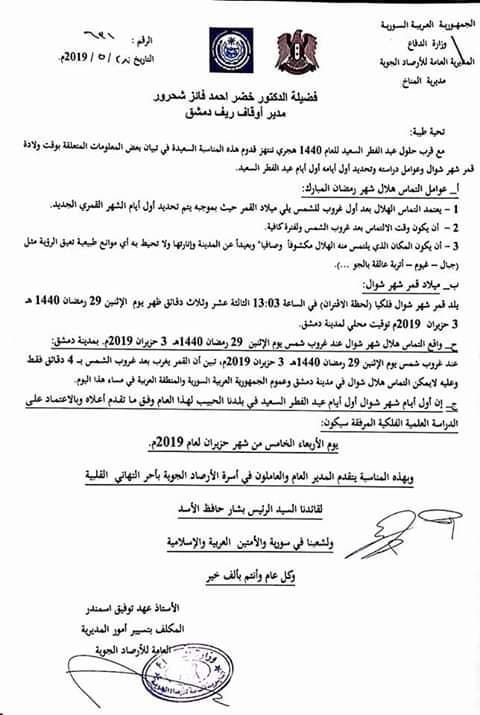 الجمهورية العربية السورية
وزارة الدفاع
المديرية العامة للأرصاد الجوية
مديرية المناخ
الرقم :
التاريخ / ٥ / 2019م.
فضيلة الدكتور خضر احمد فانز شحرور
مدير أوقاف ريف دمشق
تحية طيبة:
مع قرب حلول عيد الفطر السعيد للعام 1440 هجري ننتهز قدوم هذه المناسبة السعيدة في تبيان بعض المعلومات المتعلقة بوقت ولادة
قمر شهر شوال وعوامل دراسته وتحديد أول أيامه أول أيام عيد الفطر السعيد.
أ – عوامل التماس هلال شهر رمضان المبارك:
1 – يعتمد التماس الهلال بعد أول غروب للشمس يلي ميلاد القمر حيث بموجبه يتم تحديد أول أيام الشهر القمري الجديد.
2 – أن يكون وقت الالتماس بعد غروب الشمس ولفترة كافية.
3 – أن يكون المكان الذي يلتمس منه الهلال مكشوفاً وصافيا" وبعيداً عن المدينة وإنارتها ولا تحيط به أي موانع طبيعية تعيق الرؤية مثل
(جبال – غيوم – أتربة عالقة بالجو ...).
ب- ميلاد قمر شهر شوال:
يلد قمر شهر شوال فلكيا (لحظة الاقتران) في الساعة 13:03 الثالثة عشر وثلاث دقائق ظهر يوم الإثنين 29 رمضان 1440 هـ
3 حزيران 2019م توقيت محلي لمدينة دمشق.
ج- واقع التماس هلال شهر شوال عند غروب شمس يوم الإثنين 29 رمضان 1440هـ 3 حزيران 2019م. بمدينة دمشق:
عند غروب شمس يوم الإثنين 29 رمضان 1440هـ 3 حزيران 2019م، تبين أن القمر يغرب بعد غروب الشمس بـ 4 دقائق فقط
وعليه لايمكن التماس هلال شوال في مدينة دمشق وعموم الجمهورية العربية السورية والمنطقة العربية في مساء هذا اليوم.
ح- إن أول أيام شهر شوال أول أيام عيد الفطر السعيد في بلدنا الحبيب لهذا العام وفق ما تقدم أعلاه وبالاعتماد على
الدراسة العلمية الفلكية المرفقة سيكون:
يوم الأربعاء الخامس من شهر حزيران لعام 2019م.
وبهذه المناسبة يتقدم المدير العام والعاملون في أسرة الأرصاد الجوية بأحر التهاني القلبية
لقائدنا السيد الرئيس بشار حافظ الأسد
ولشعبنا في سورية والأمتين العربية والإسلامية
وكل عام وأنتم بألف خير
الأستاذ عهد توفيق اسمندر
المكلف بتسيير أمور المديرية
العامة للأرصاد الجوية